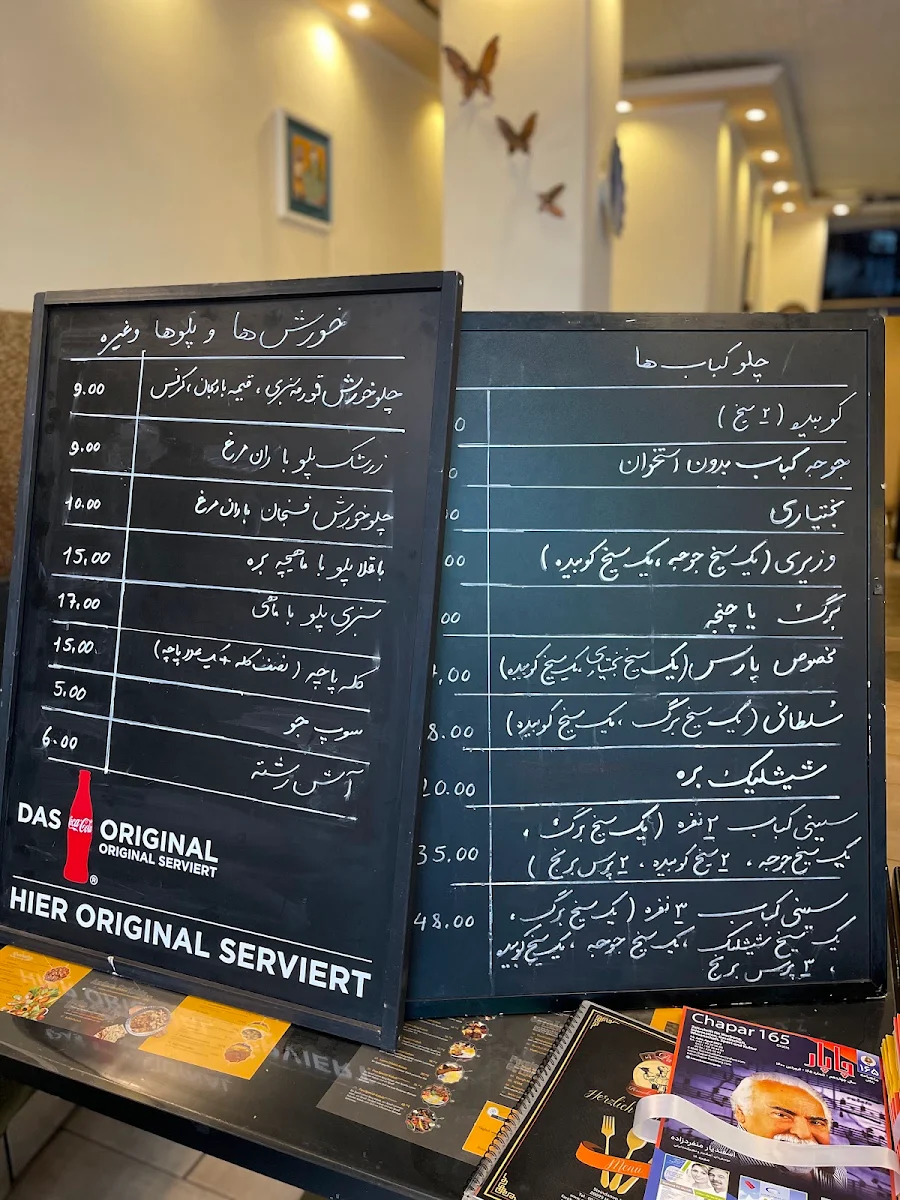 خورش‌ها و پلوها وغیره
چلوخورش قورمه‌سبزی، قیمه بادمجان، کرفس 9.00
زرشک پلو با ران مرغ 9.00
چلوخورش فسنجان باران مرغ 10.00
باقلا پلو با ماهیچه بره 15.00
سبزی پلو با ماهی 17.00
کله پاچه ( نصف کله + یک عدد پاچه) 15.00
سوپ جو 5.00
آش رشته 6.00
DAS ORIGINAL
Coca-Cola
ORIGINAL SERVIERT
HIER ORIGINAL SERVIERT
چلو کباب ها
کوبیده (۲ سیخ)
جوجه کباب بدون استخوان
بختیاری
وزیری (یک سیخ جوجه، یک سیخ کوبیده)
برگ یا چنجه
مخصوص پارس (یک سیخ بختیاری یک سیخ کوبیده)
سلطانی (یک سیخ برگ، یک سیخ کوبیده) 8.00
شیشلیک بره 20.00
سینی کباب ۲ نفره (یک سیخ برگ،
یک سیخ جوجه، ۲ سیخ کوبیده، ۲ پرس برنج) 35.00
سینی کباب ۳ نفره (یک سیخ برگ،
یک سیخ شیشلیک، یک سیخ جوجه، یک سیخ کوبیده 48.00
، ۳ پرس برنج
Chapar 165
چاپار
۱۶۵
Herzlich
Menü